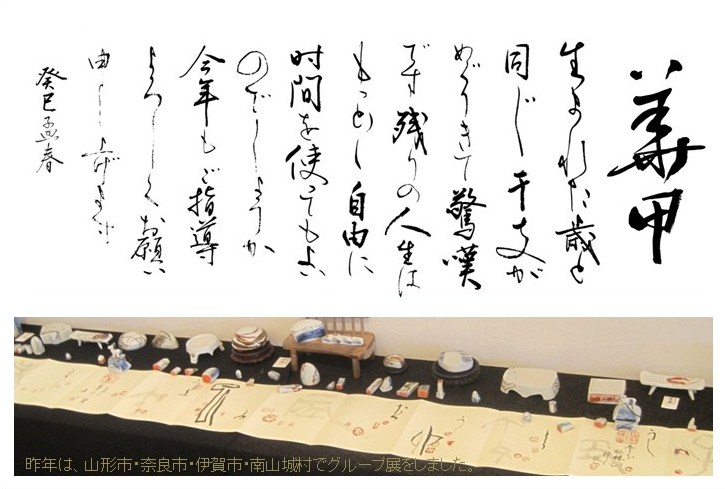 華甲
生まれた歳と
同じ干支が
めぐりきて驚嘆
です残りの人生は
もっと自由に
時間を使ってもよい
のでしょうか
今年もご指導
よろしくお願い
申し上げます
癸巳孟春
昨年は、山形市・奈良市・伊賀市・南山城村でグループ展をしました。